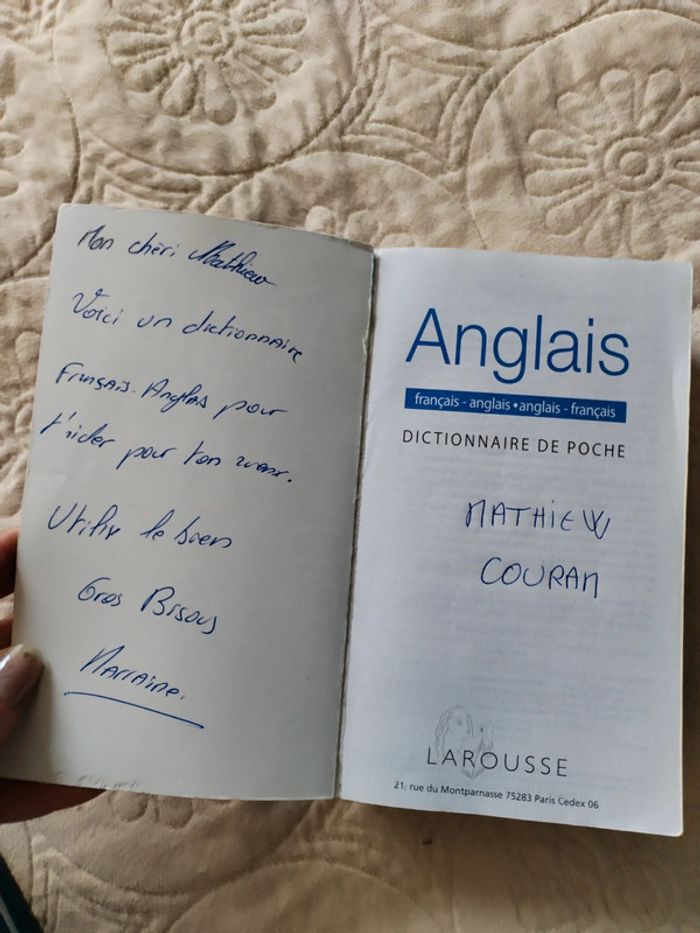 Mon chéri Mathieu
Voici un dictionnaire
Français-Anglais pour
t'aider pour ton
Utilise le bien
Gros Bisous
Marraine.
Anglais
français - anglais • anglais - français
DICTIONNAIRE DE POCHE
MATHIEW
COURAM
LAROUSSE
21, rue du Montparnasse 75283 Paris Cedex 06